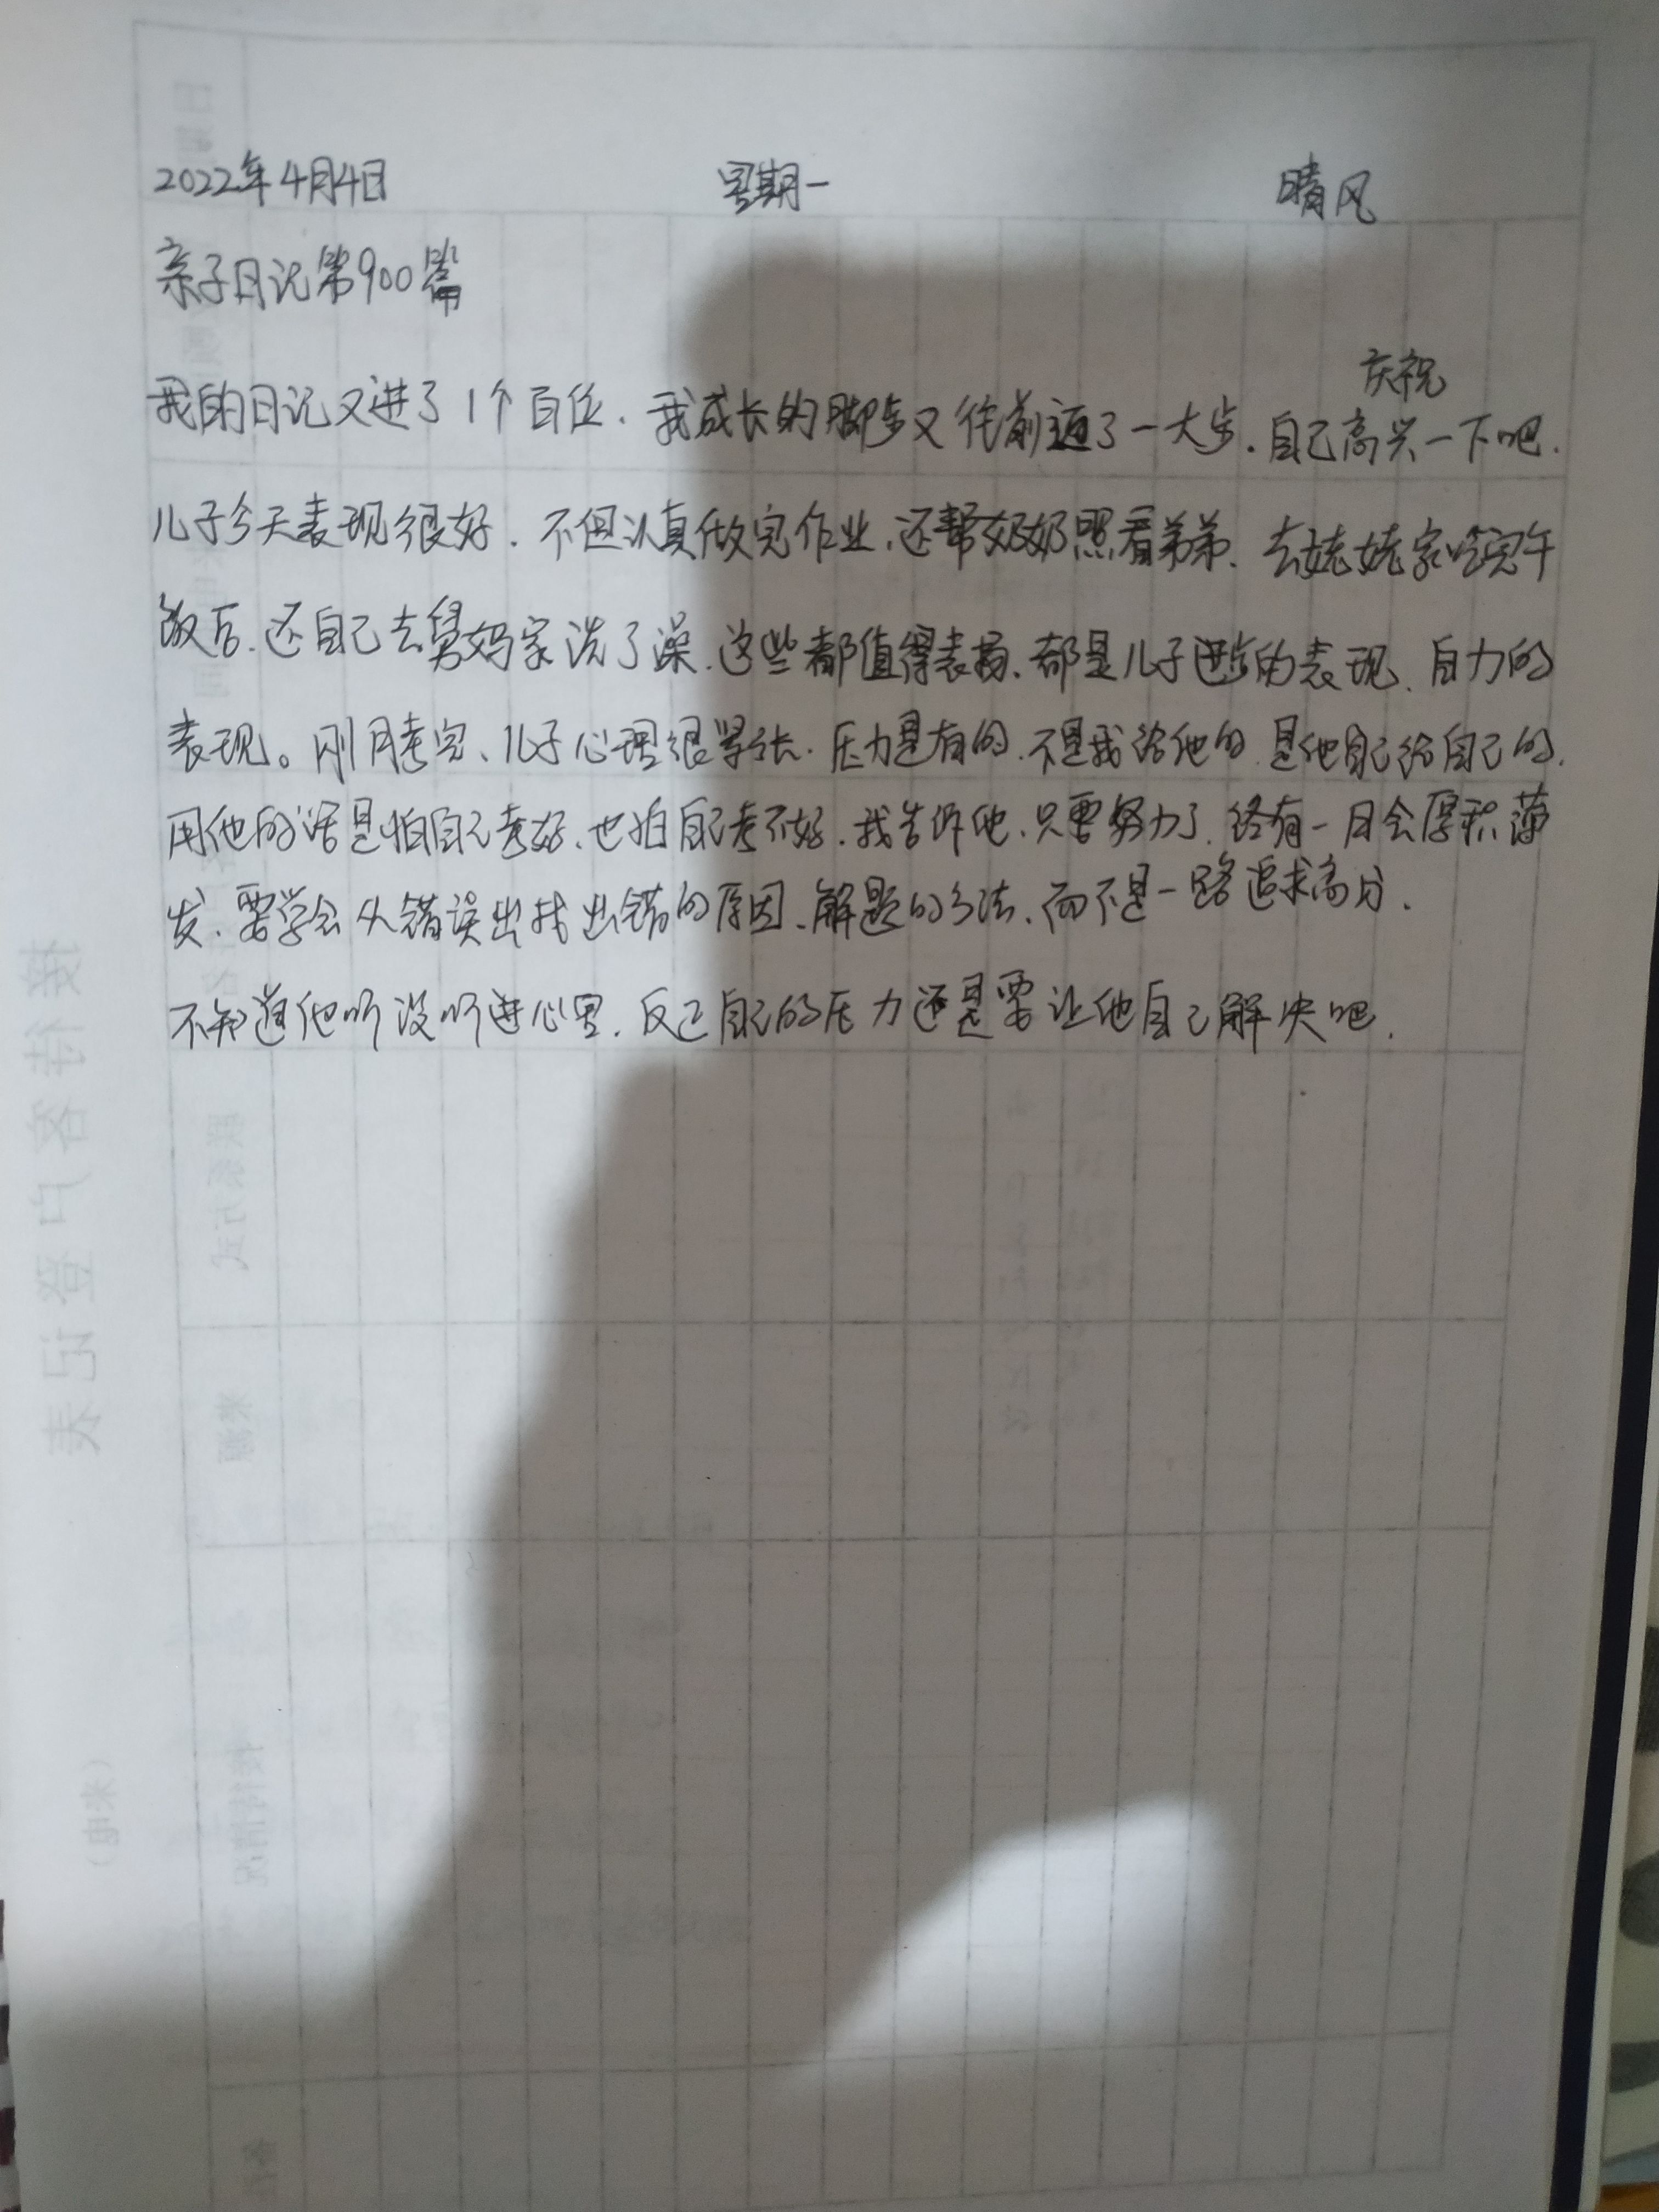 2022年4月4日 星期一 晴风
亲子日记第900篇
庆祝
我的日记又进了1个百位.我成长的脚步又往前迈了一大步.自己高兴一下吧.
儿子今天表现很好.不但认真做完作业,还帮奶奶照看弟弟.去姥姥家吃完午
饭后.还自己去舅妈家洗了澡.这些都值得表扬.都是儿子进步的表现.自力的
表现。刚月考完、儿子心理很紧张.压力是有的.不是我给他的.是他自己给自己的.
用他的话是怕自己考好、也怕自己考不好.我告诉他.只要努力了.终有一日会厚积薄
发.要学会从错误出找出错的原因、解题的方法.而不是一路追求高分.
不知道他听没听进心里.反正自己的压力还是要让他自己解决吧.
接待客户登记表
联系方式
来源
接待情况
(来电)